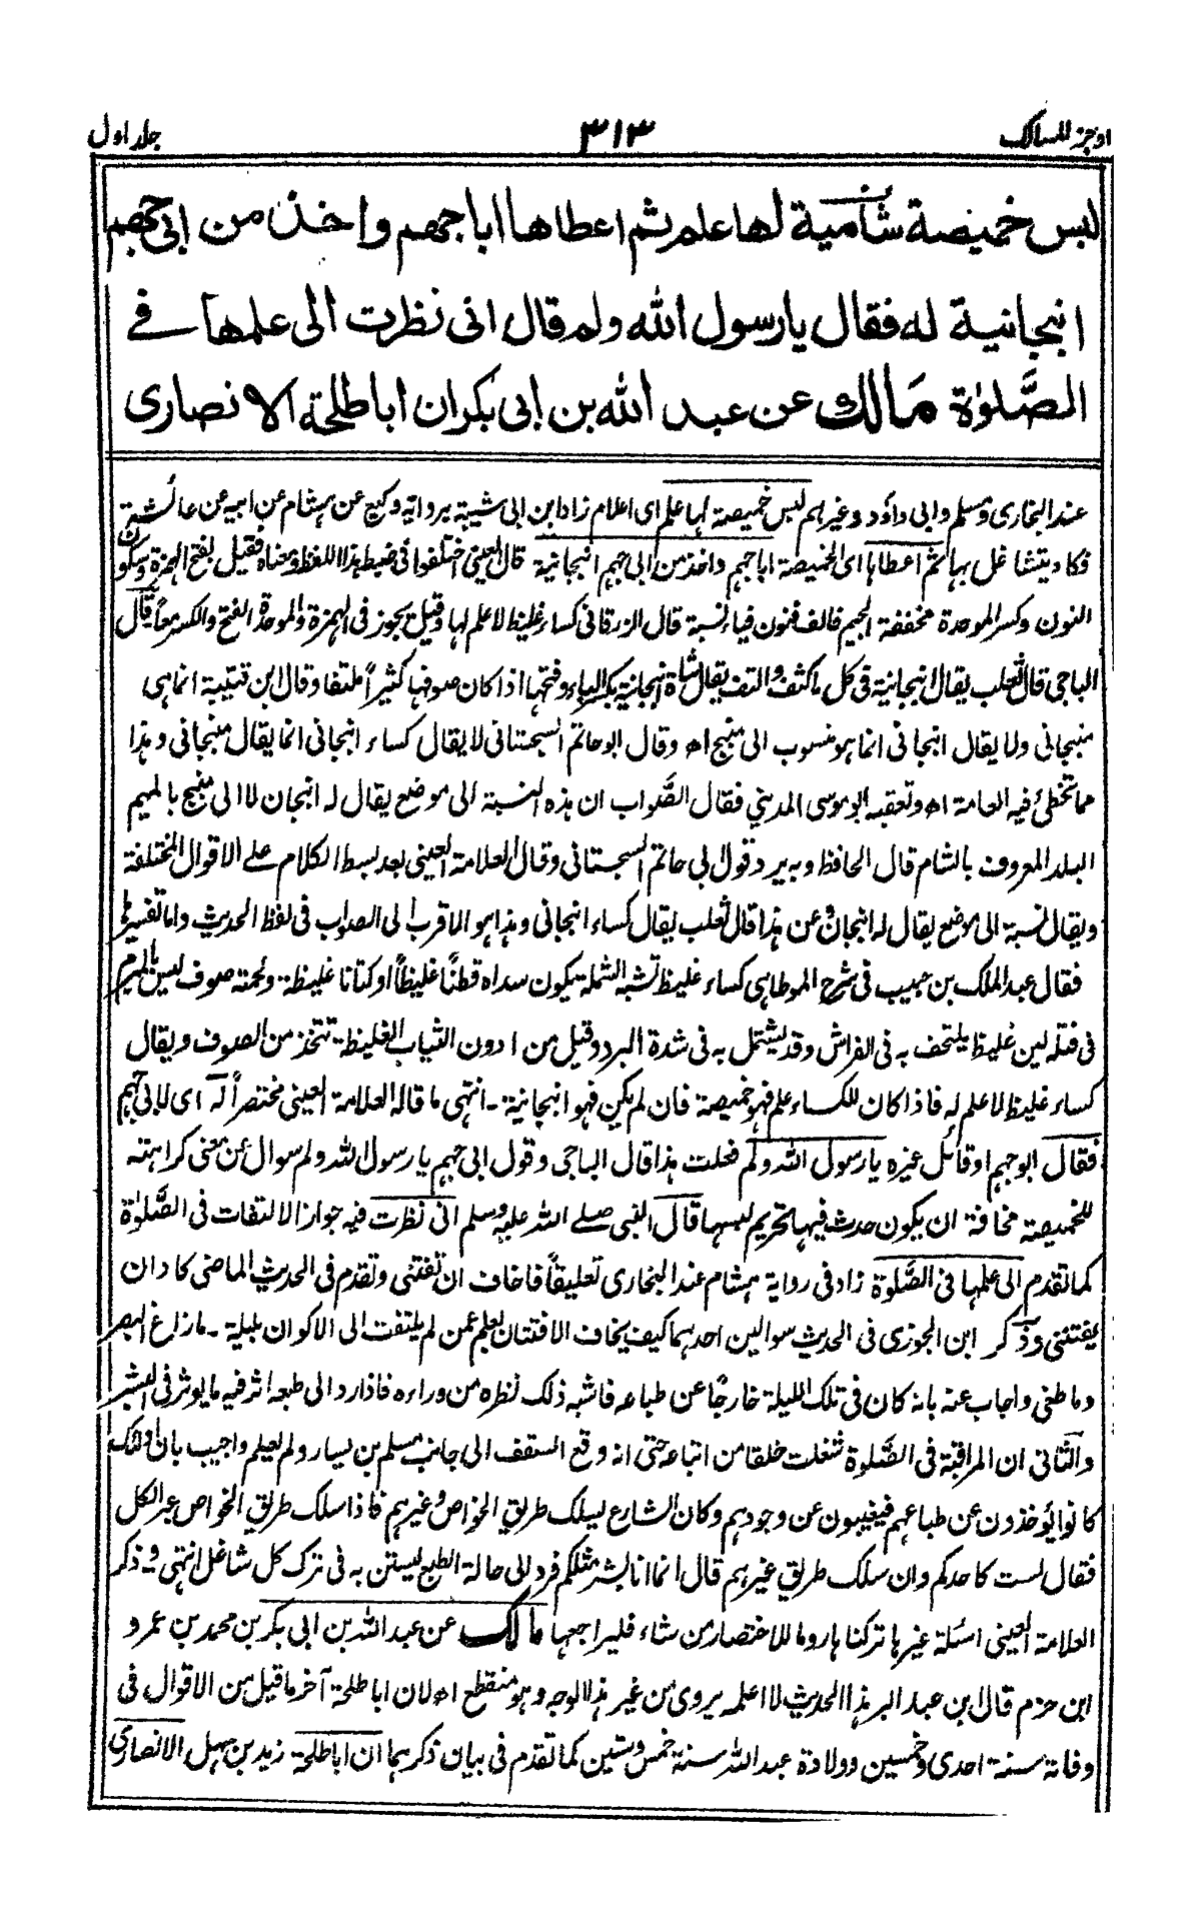 اوجز المسالك ٣١٣ جلد اول
لبس خميصة شامية لها علم ثم اعطاها ابا جهم واخذ من ابى جهم
انبجانية له فقال يا رسول الله ولم قال انى نظرت الى علمها فى
الصَّلوٰة مَالك عن عبد الله بن ابى بكر ان ابا طلحة الانصارى
عند البخارى ومسلم وابى داؤد وغيرهم لبس خميصة لها علم اى اعلام زاد ابن ابى شيبة برواية وكيع عن هشام عن ابيه عن عائشة
فكاد يتشاغل بها ثم اعطاها اى الخميصة ابا جهم واخذ من ابى جهم انبجانية قال العينى اختلفوا فى ضبط هذا اللفظ ومعناه فقيل بفتح الهمزة وسكون
النون وكسر الموحدة مخففة الجيم فالف فنون فياء نسبة قال الزرقانى كساء غليظ لا علم لها وقيل يجوز فى الهمزة والموحدة الفتح والكسر معاً قال
الباجى قال ثعلب يقال انبجانية فى كل ما كثف والتف يقال شاة انبجانية بكسر الباء وفتحها اذا كان صوفها كثيراً ملتفا وقال ابن قتيبة انما هى
منبجانى ولا يقال انبجانى انما هو منسوب الى منبج اھ وقال ابو حاتم السجستانى لا يقال كساء انبجانى انما يقال منبجانى وهذا
مما تخطئ فيه العامة اھ وتعقبه ابو موسى المدينى فقال الصَّواب ان هذه النسبة الى موضع يقال له انبجان لا الى منبج بالميم
البلد المعروف بالشام قال الحافظ وبه يرد قول ابى حاتم السجستانى وقال العلامة العينى بعد بسط الكلام على الاقوال المختلفة
ويقال نسبة الى موضع يقال له انبجان وعن هذا قال ثعلب يقال كساء انبجانى وهذا هو الاقرب الى الصواب فى لفظ الحديث واما تفسيرها
فقال عبد الملك بن حبيب فى شرح الموطا هى كساء غليظ تشبه الشملة يكون سداه قطنًا غليظاً او كتانا غليظة ولحمته صوف ليس بالمبرم
فى فتله لين غليظ يلتحف به فى الفراش وقد يشتمل به فى شدة البرد وقيل من ادون الثياب الغليظة تتخذ من الصوف ويقال
كساء غليظ لا علم له فاذا كان للكساء علم فهو خميصة فان لم يكن فهو انبجانية۔ انتهى ما قاله العلامة العينى مختصراً له اى لابى جهم
فقال ابو جهم او قائل غيره يا رسول الله ولم فعلت هذا قال الباجى وقول ابى جهم يا رسول الله ولم سوال عن معنى كراهته
للخميصة مخافة ان يكون حدث فيها تحريم لبسها قال النبى صلے الله عليه وسلم انى نظرت فيه جواز الالتفات فى الصَّلوٰة
كما تقدم الى علمها فى الصَّلوٰة زاد فى رواية هشام عند البخارى تعليقاً فاخاف ان تفتنى وتقدم فى الحديث الماضى كاد ان
يفتننى وذكر ابن الجوزى فى الحديث سوالين احدهما كيف يخاف الافتتان بعلم من لم يلتفت الى الاكوان بليلة۔ ما زاغ البصر
وما طغى واجاب عنه بانه كان فى تلك الليلة خارجًا عن طباعه فاشبه ذلك نظره من وراءه فاذا رد الى طبعه اثر فيه ما يوثر فى البشر
والثانى ان المراقبة فى الصَّلوة شغلت خلقا من اتباعه حتى انه وقع السقف الى جانب مسلم بن يسار ولم يعلم واجيب بان اولئك
كانوا يوخذون عن طباعهم فيغيبون عن وجودهم وكان الشارع يسلك طريق الخواص وغيرهم فاذا سلك طريق الخواص عبر الكل
فقال لست كاحدكم وان سلك طريق غيرهم قال انما انا بشر مثلكم فرد الى حالة الطبع ليستن به فى ترك كل شاغل انتهى وذكر
العلامة العينى اسئلة غيرها تركناها روما للاختصار من شاء فليراجعها مالك عن عبد الله بن ابى بكر بن محمد بن عمرو
ابن حزم قال ابن عبد البر هذا الحديث لا اعلمه يروى من غير هذا الوجه وهو منقطع اھ لان ابا طلحة آخر ما قيل من الاقوال فى
وفاته سنة احدى وخمسين وولادة عبد الله سنة خمس وستين كما تقدم فى بيان ذكرهما ان ابا طلحة زيد بن سهل الانصارى